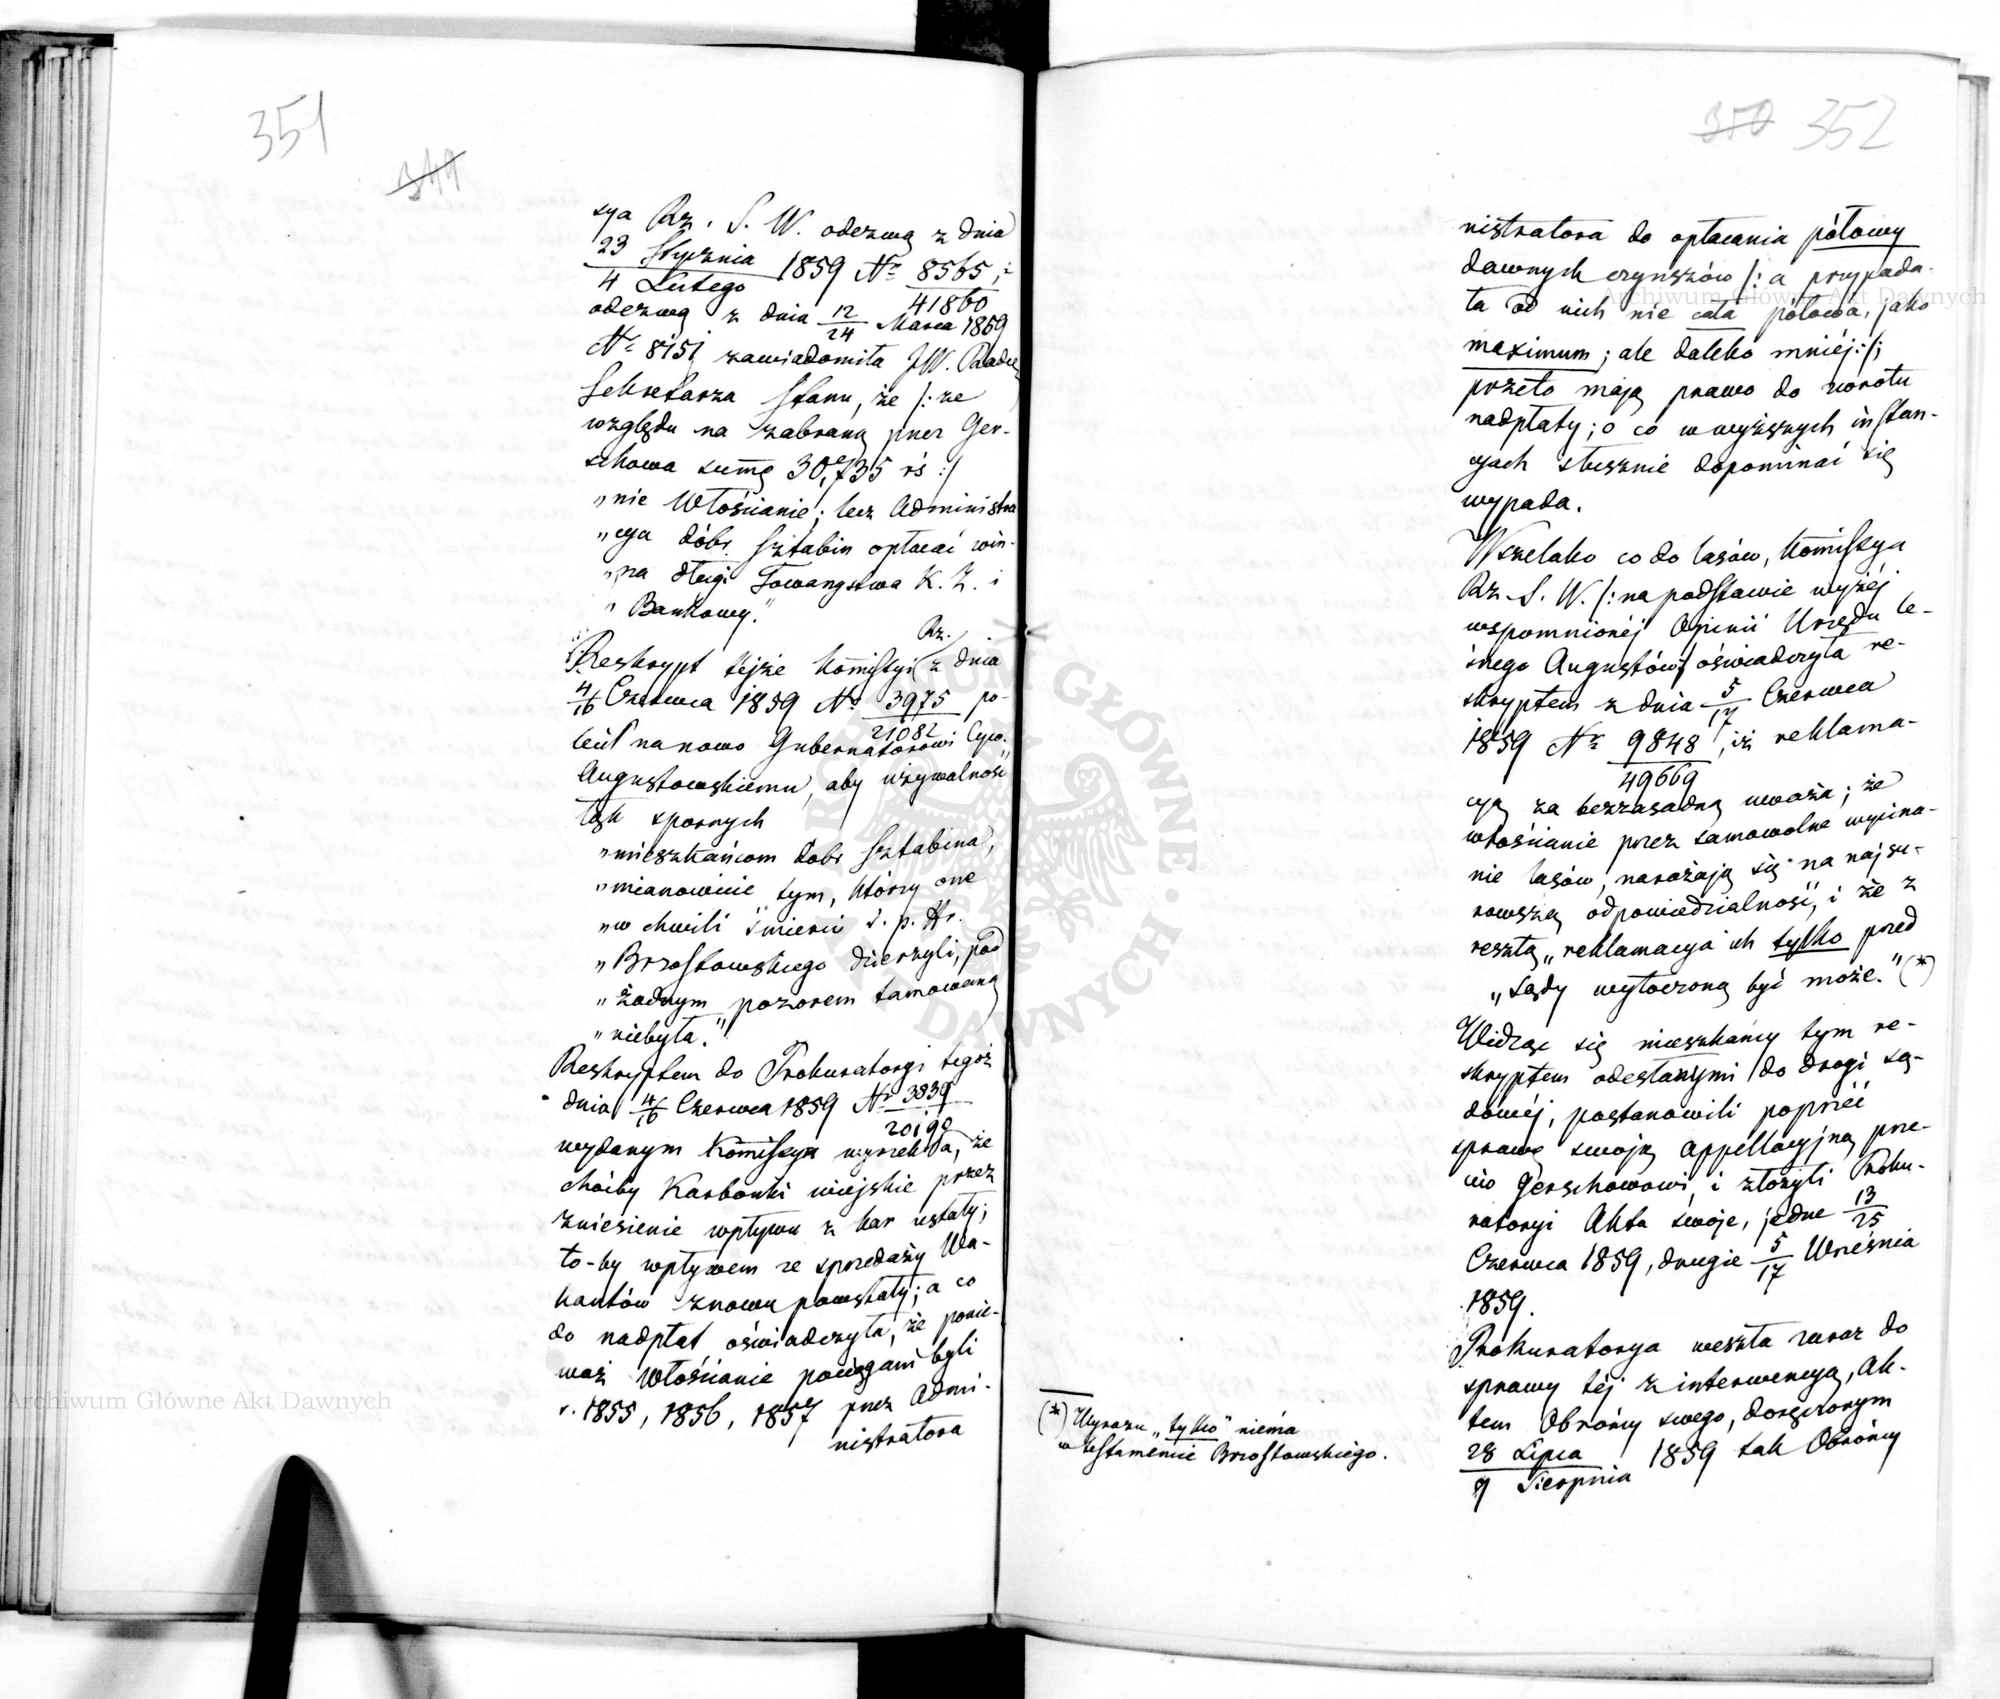 351
349
sya Rz. S. W. odezwą z dnia
23 Stycznia / 4 Lutego 1859 Nr 8565 / 41860, i
odezwą z dnia 12/24 Marca 1859
Nr 8151 zawiadomiła JW. Radcę
Sekretarza Stanu, że /: ze
względu na zabraną przez Ger-
schowa sumę 30,735 rs :/
„nie Włościanie; lecz Administra
„cya dóbr Sztabin opłacać win-
„na długi Towarzystwa K. Z. i
„Bankowy."
Reskrypt tejże Komissyi Rz. z dnia
4/16 Czerwca 1859 Nr 3975 / 21082 po-
lecił na nowo Gubernatorowi Cyw.
Augustowskiemu, aby używalność
łąk spornych
„mieszkańcom dóbr Sztabina,
„mianowicie tym, którzy one
„w chwili śmierci ś. p. Hr.
„Brzostowskiego dzierżyli, pod
„żadnym pozorem tamowaną
„niebyła."
Reskryptem do Prokuratoryi tegoż
dnia 4/16 Czerwca 1859 Nr 3839 / 20190
wydanym Komissya wyrzekła, że
choćby Karbonki wiejskie przez
zniesienie wpływu z kar ustały;
to-by wpływem ze sprzedaży Wa-
kantów znowu powstały; a co
do nadpłat oświadczyła, że ponie-
waż Włościanie pociągani byli
r. 1855, 1856, 1857 przez Admi-
nistratora
350 352
nistratora do opłacania połowy
dawnych czynszów /: a przypada-
ła od nich nie cała połowa, jako
maximum; ale daleko mniéj :/;
przeto mają prawo do zwrotu
nadpłaty; o co w wyższych instan-
cyach słusznie dopominać się
wypada.
Wszelako co do lasów, Komissya
Rz. S. W. /: na podstawie wyżéj
wspomnionéj Opinii Urzędu le-
śnego Augustów :/ oświadczyła re-
skryptem z dnia 5/17 Czerwca
1859 Nr 9848 / 49669, iż reklama-
cyą za bezzasadną uważa; że
włościanie przez samowolne wycina-
nie lasów, narażają się na najsu-
rowszą odpowiedzialność, i że z
resztą „reklamacya ich tylko przed
„Sądy wytoczoną być może." (*)
Widząc się mieszkańcy tym re-
skryptem odesłanymi do drogi są-
dowéj, postanowili poprzeć
sprawę swoją appellacyjną prze-
ciw Gerschowowi, i złożyli Proku-
ratoryi Akta swoje, jedne 13/25
Czerwca 1859, drugie 5/17 Września
1859.
Prokuratorya weszła zaraz do
sprawy téj z interwencyą, Ak-
tem Obrońcy swego, doręczonym
28 Lipca / 9 Sierpnia 1859 tak Obrońcy
(*) Wyrazu „tylko" niéma
w testamencie Brzostowskiego.
Archiwum Główne Akt Dawnych
Archiwum Główne Akt Dawnych
ARCHIWUM GŁÓWNE AKT DAWNYCH